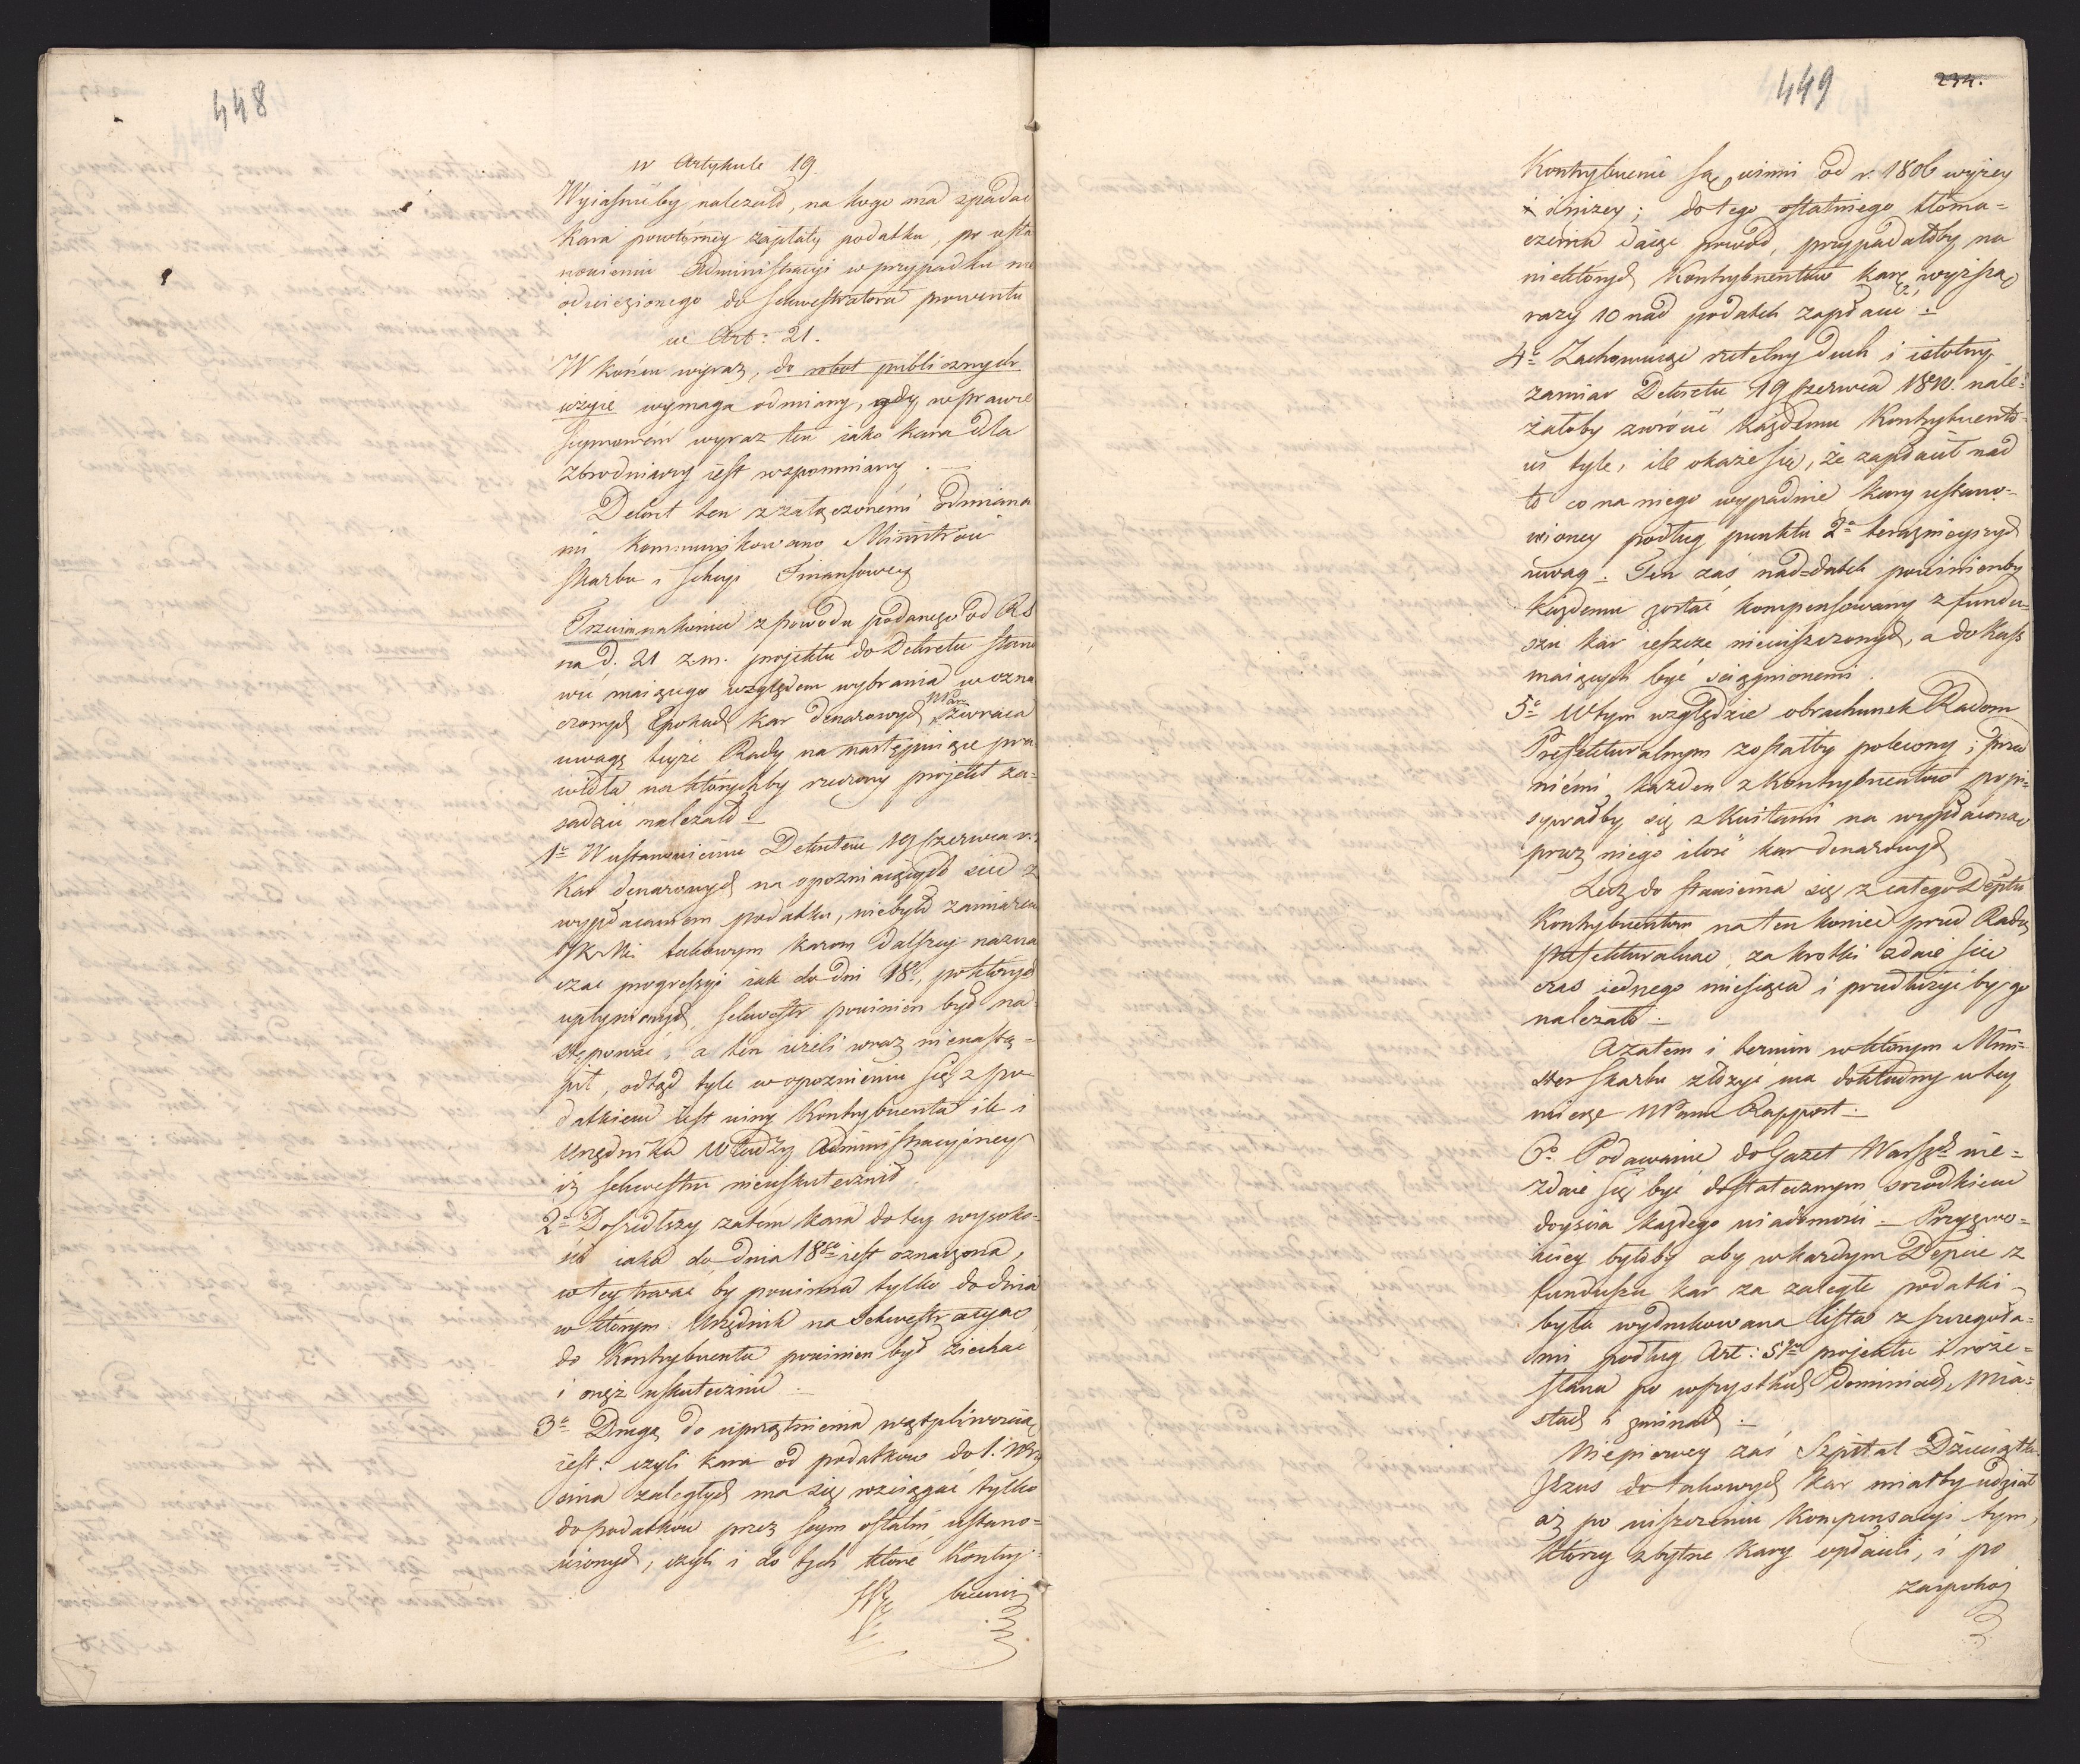 448
w Artykule 19.
Wyiaśnićby należało, na kogo ma spadać
kara powtórnéy zapłaty podatku, po usta
nowieniu Administracyi w przypadku nie
odwiezionego do sekwestratora prowentu
w Art: 21.
W końcu wyraz, do robot publicznych
użyie wymaga odmiany, gdy w prawie
Seymowém wyraz ten iako kara dla
zbrodniarzy iest wspomniany. —
Dekret ten z załączonémi odmiana
mi kommunikowano Ministrowi
Skarbu i Sekcyi Finansowey
Trzecia nakoniec z powodu podanego od RS
na d. 21 z.m. projektu do Dekretu stano
wić maiącego względem wybrania w ozna
czonych Epokach kar denarowych zwraca
uwagę teyże Rady na następuiące pra
widła na którychby rzeczony projekt za=
sadzić należało —
1º W ustanowieniu Dekretem 19 Czerwca r.
Kar denarowych na opozniaiących sie z
wypłacaniem podatku, niebyło zamiarem
JKMci takowym karom dalszey nazna
czać progressyi iak do dni 18, po których
upłynionych, sekwestr powinien był na=
stępować, a ten ieżeli wraz nienastą=
pił, odtąd tyle w opoznieniu się z po=
datkiem iest winy Kontrybuenta ile i
Urzędnika Władzy Administracyjney
iż sekwestru nieuskutecznił.
2º Doszedłszy zatém kara do tey wysoko=
ści iaka do dnia 18go iest oznaczona,
w tey trwać by powinna tylko do dnia
w którym Urzędnik na Sekwestracyą
do Kontrybuenta powinien był ziechać
i onęż uskutecznić —
3º Drugą do uprzątnienia wątpliwością
iest: czyli kara od podatków do 1.
śnia zaległych ma się rozciągać tylko
do podatków przez Seym ostatni ustano=
wionych, czyli i do tych które Kontry=
buenci
449
234.
Kontrybuenci są winni od r. 1806 wyżey
i niżey; do tego ostatniego tłoma=
czenia daiąc powód, przypadałoby na
niektórych Kontrybuentów karę wyższą
razy 10 nad podatek zapłacić —
4º Zachowuiąc rzetelny duch i istotny
zamiar Dekretu 19 Czerwca 1810. nale=
żałoby zwrócić każdemu Kontrybuento=
wi tyle, ile okaże się, że zapłacił nad
to co na niego wypadnie kary ustano=
wioney podług punktu 2º terazniejszych
uwag. Ten zaś nad=datek powinienby
każdemu zostać kompensowany z fundu=
szu kar ieszcze nieuiszczonych, a do Kass
maiących być ściągnionemi.
5º W tym względzie obrachunek Radom
Prefekturalnym zostałby polecony; przed
niémi każden z Kontrybuentów popi=
sywałby się z Kwitami na wypłaconą
przez niego ilość kar denarowych
Lecz do stawienia się z całego Deptu
Kontrybuentom na ten koniec przed Radą
prefekturalną, za krotki zdaie sie
czas iednego miesiąca i przedłużyćby go
należało —
A zatém i termin w którym Mini=
ster Skarbu złożyć ma dokładny w tey
mierze WPanu Rapport —
6º Podawanie do Gazet Warszch nie=
zdaie się być dostatecznym srodkiem
doyścia każdego wiadomości — Przyzwo=
iciey byłoby aby w kazdym Depcie z
funduszu kar za zaległe podatki
była wydrukowana lista z szczegóła=
mi podług Art: 5go projektu i roze=
słana po wszystkich Dominiach, Mia=
stach i gminach —
Niepierwey zaś Szpital Dzieciątka
Jezus do takowych kar miałby udział
aż po uiszczeniu Kompensacyi tym,
którzy zbytne kary opłacili, i po
zaspokoj